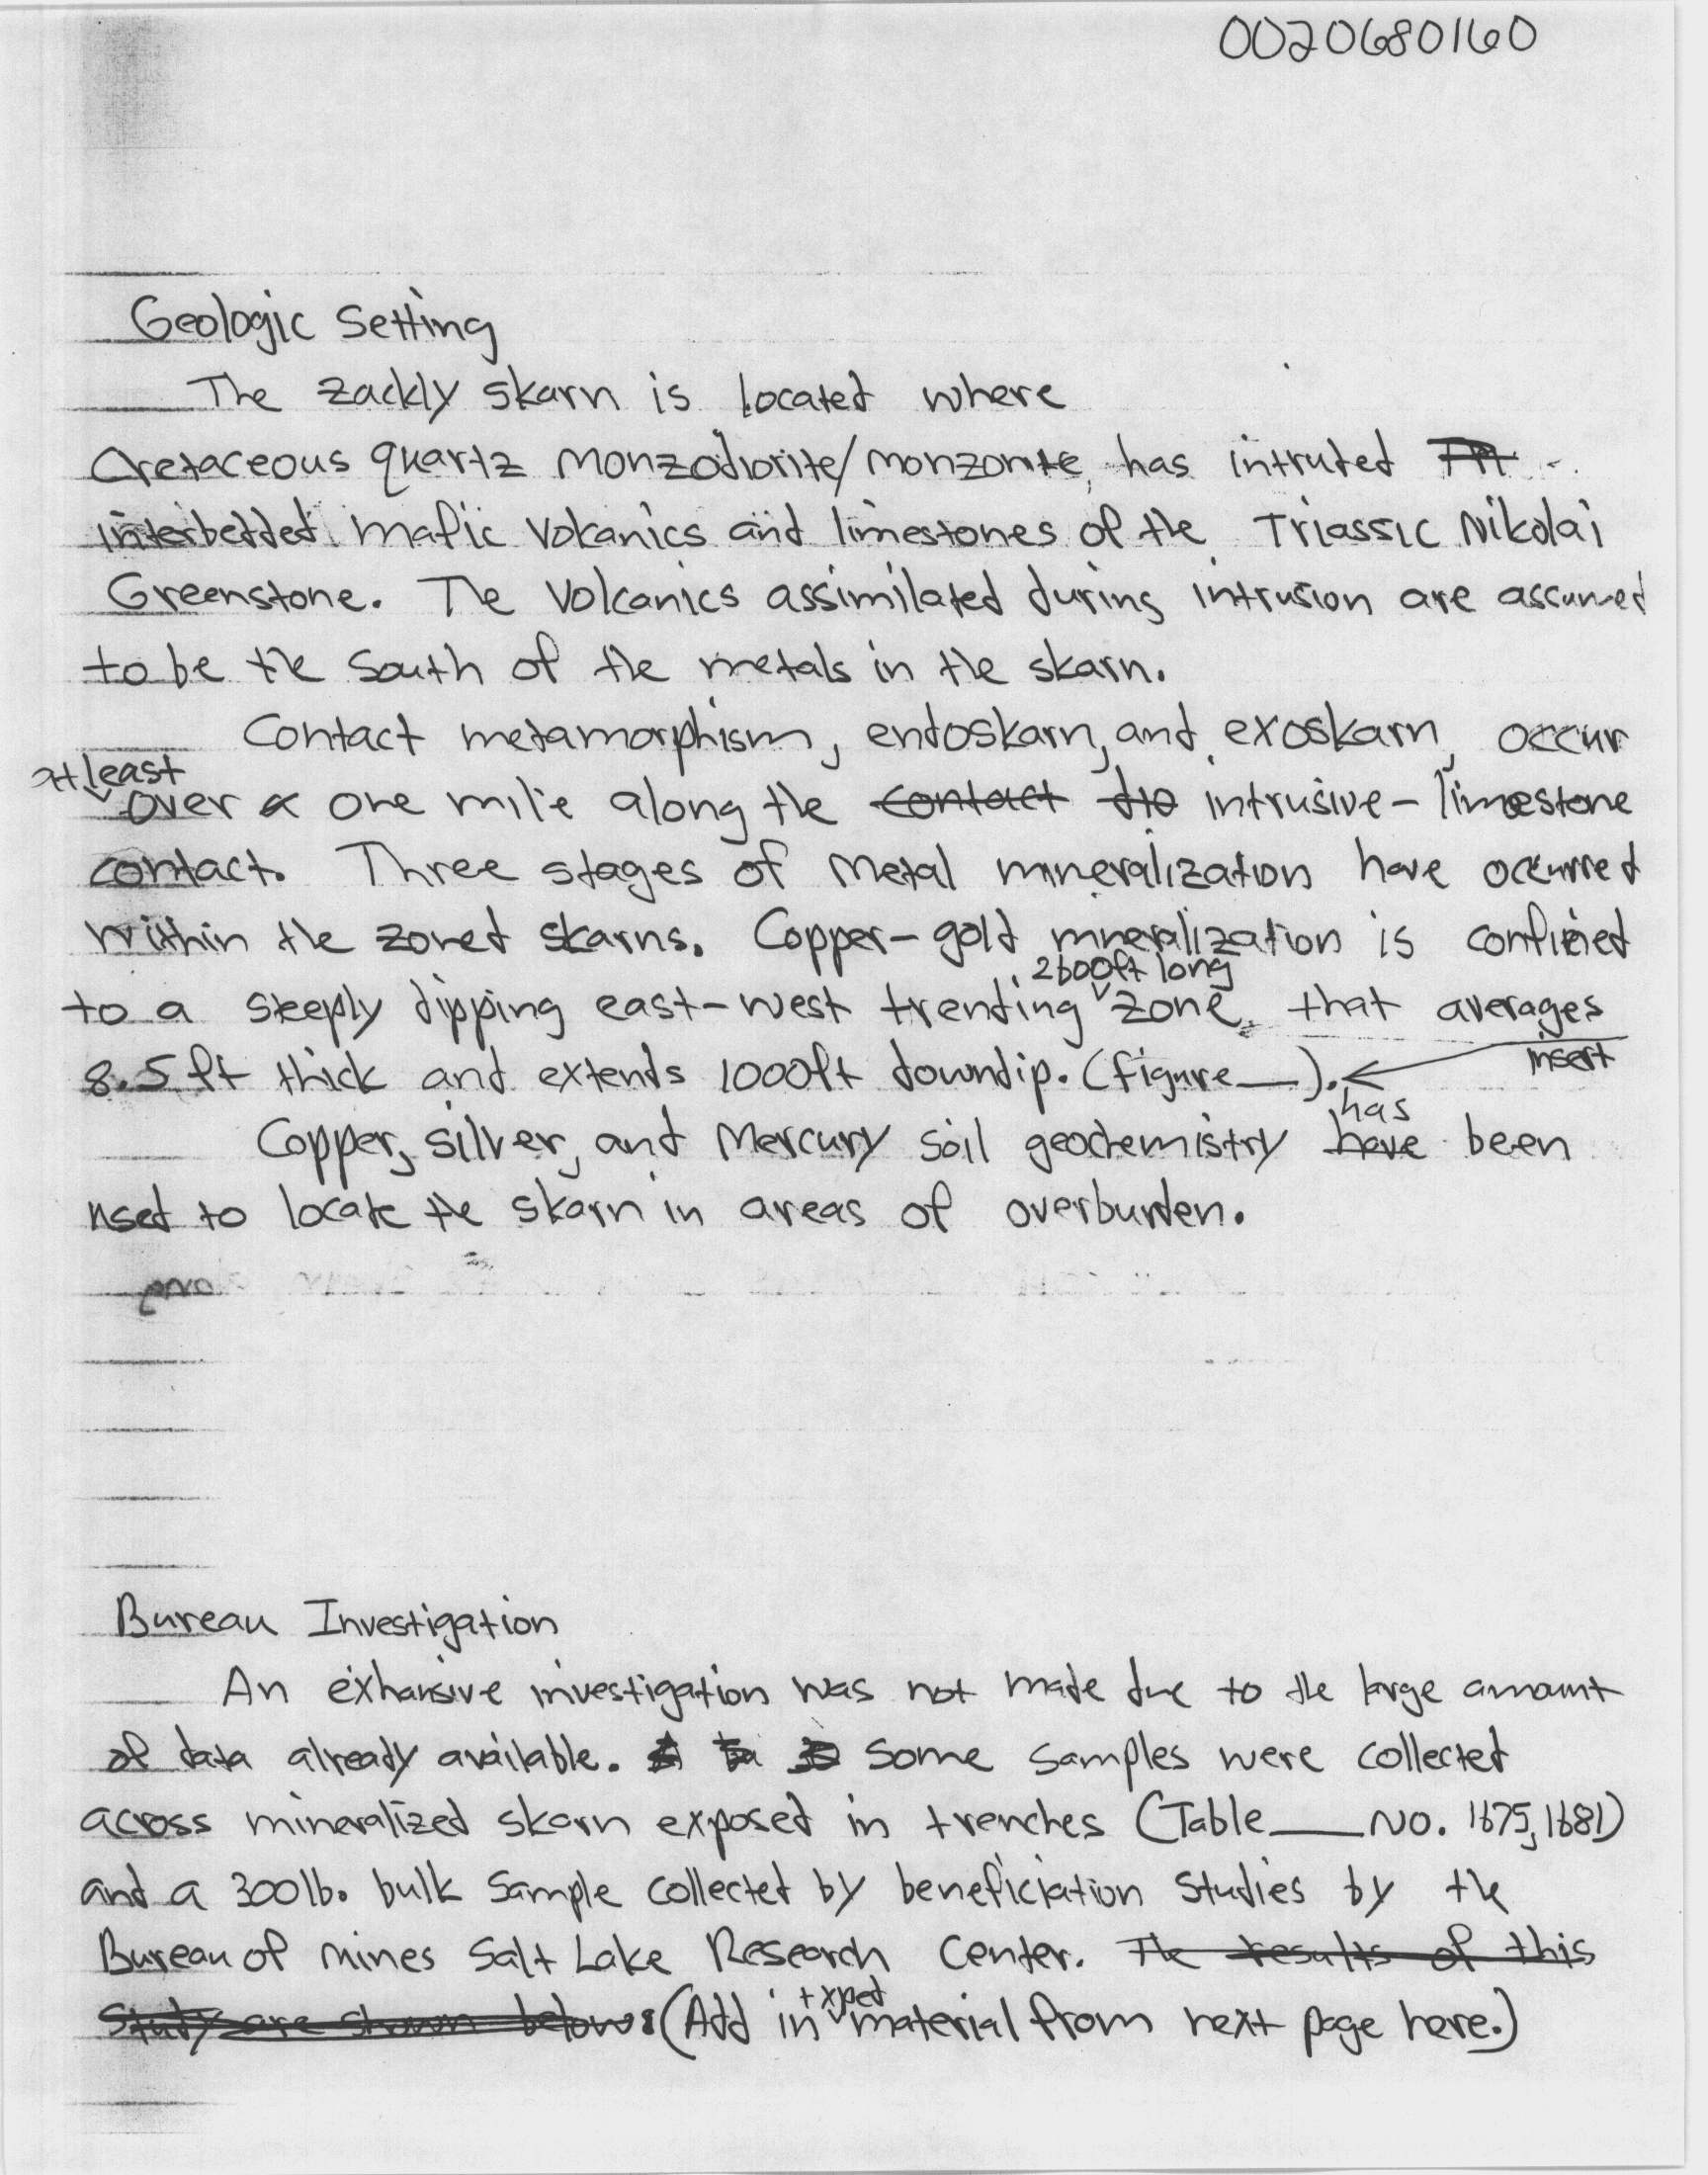 0020680160
Geologic Setting
The Zackly skarn is located where
Cretaceous quartz monzodiorite/monzonite, has intruded
interbedded mafic volcanics and limestones of the Triassic Nikolai
Greenstone. The volcanics assimilated during intrusion are assumed
to be the south of the metals in the skarn.
Contact metamorphism, endoskarn, and exoskarn, occur
at least
over a one mile along the contact intrusive-limestone
contact. Three stages of metal mineralization have occurred
within the zoned skarns. Copper-gold mineralization is confined
2600ft long
to a steeply dipping east-west trending zone, that averages
8.5 ft thick and extends 1000ft downdip. (figure __). insert
has
Copper, silver, and Mercury soil geochemistry have been
used to locate the skarn in areas of overburden.
Bureau Investigation
An exhansive investigation was not made due to the large amount
of data already available. Some samples were collected
across mineralized skarn exposed in trenches (Table ___ No. 1675, 1681)
and a 300lb. bulk sample collected by beneficiation studies by the
Bureau of Mines Salt Lake Research Center. The results of this
typed
study are shown below: (Add in material from next page here.)